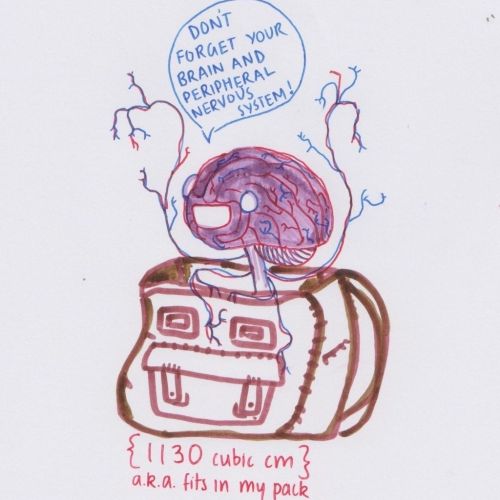 DON'T
FORGET YOUR
BRAIN AND
PERIPHERAL
NERVOUS
SYSTEM!
{1130 cubic cm}
a.k.a. fits in my pack